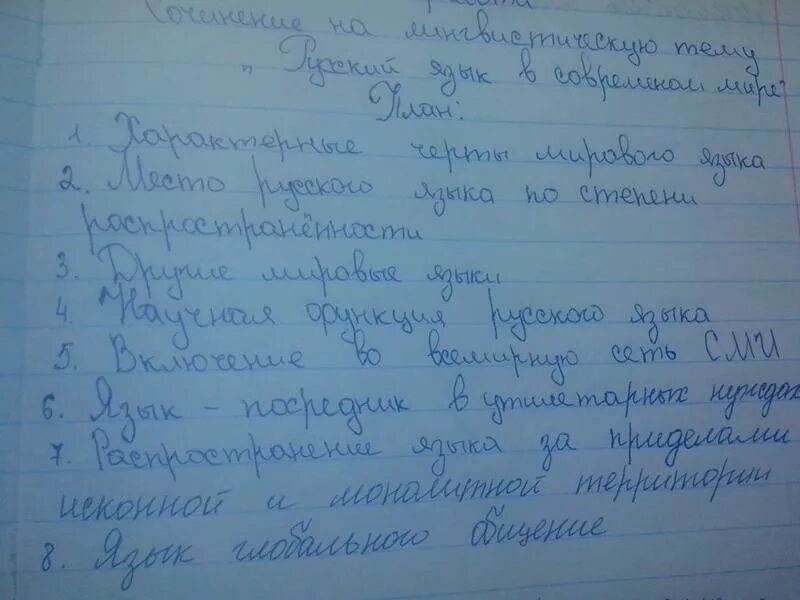 Сочинение на лингвистическую тему
„ Русский язык в современом мире"
План:
1. Характерные черты мирового языка
2. Место русского языка по степени
распространённости
3. Другие мировые языки
4. Научная функция русского языка
5. Включение во всемирную сеть СМИ
6. Язык – посредник в утилетарных нуждах
7. Распространение языка за приделами
исконной и монолитной территории
8. Язык глобального общение